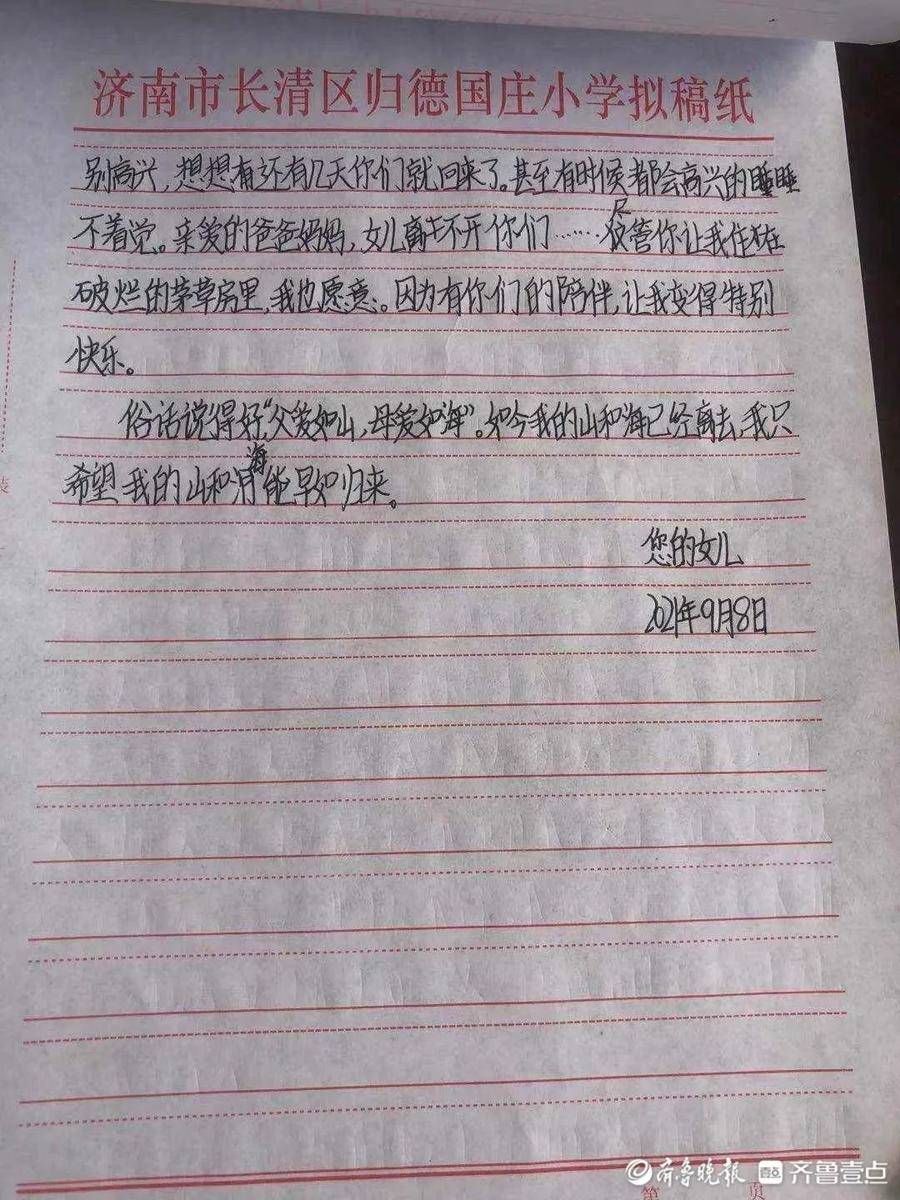 济南市长清区归德国庄小学拟稿纸
别高兴，想想有还有几天你们就回来了。甚至有时候都会高兴的睡睡
不着觉。亲爱的爸爸妈妈，女儿离不开你们……尽管你让我住在
破烂的茅草房里，我也愿意。因为有你们的陪伴，让我变得特别
快乐。
俗话说得好，“父爱如山，母爱如海”。如今我的山和海已经离去，我只
希望我的山和海能早如归来。
您的女儿
2021年9月8日
第 页
齐鲁晚报 齐鲁壹点